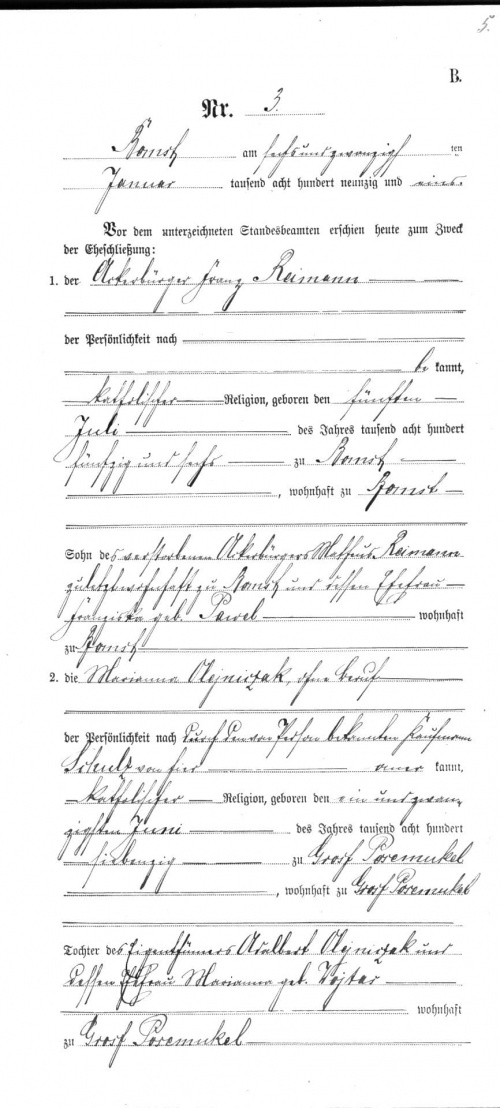 5.
B.
Nr. 3.
Bomst am sechsundzwanzigsten
Januar tausend acht hundert neunzig und eins.
Vor dem unterzeichneten Standesbeamten erschien heute zum Zweck
der Eheschließung:
1. der Ackerbürger Franz Reimann
der Persönlichkeit nach
be kannt,
katholischer Religion, geboren den fünften
Juli des Jahres tausend acht hundert
fünfzig und sechs zu Bomst
, wohnhaft zu Bomst
Sohn des verstorbenen Ackerbürgers Matheus Reimann
zuletzt wohnhaft zu Bomst und dessen Ehefrau
Franziska geb. Pawel wohnhaft
zu Bomst
2. die Marianna Olejniczak, ohne Beruf
der Persönlichkeit nach durch den von Person bekannten Kaufmann
Schulz von hier aner kannt,
katholischer Religion, geboren den ein und zwan
zigsten Juni des Jahres tausend acht hundert
siebenzig zu Groß Posemukel
, wohnhaft zu Groß Posemukel
Tochter des Eigenthümers Adalbert Olejniczak und
dessen Ehefrau Marianna geb. Wojtas
wohnhaft
zu Groß Posemukel